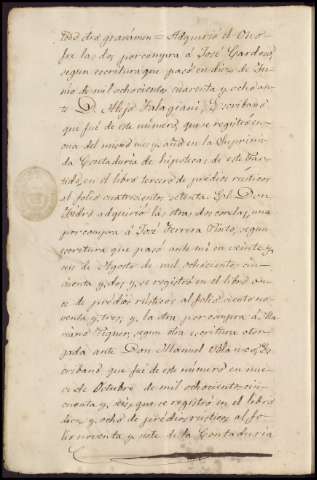 todo otro gravámen = Adquirió el Ono-
fre las dos por compra á José Cardona,
segun escritura que pasó en diez de Ju-
nio de mil ochocientos cuarenta y ocho an-
te D. Alejo Italagiani, Escribano
que fué de este número, que se registró en
once del mismo mes y año en la Suprimi-
da Contaduría de hipotecas de este Par-
tido, en el libro tercero de prédios rústicos
al folio cuatrocientos setenta. El Don
Pedro adquirió las otras dos con las, una
por compra á José Ferrera Pinto, segun
escritura que pasó ante mí en veinte y
seis de Agosto de mil ochocientos cin-
cuenta y dos y se registró en el libro on-
ce de prédios rústicos al folio ciento no-
venta y tres; y la otra por compra á Ma-
riano Piquer, segun otra escritura otor-
gada ante Don Manuel Blanes, Es-
cribano que fué de este número en nue-
ve de Octubre de mil ochocientos cin-
cuenta y seis, que se registró en el libro
diez y ocho de prédios rústicos al fo-
lio noventa y siete de la Contaduría